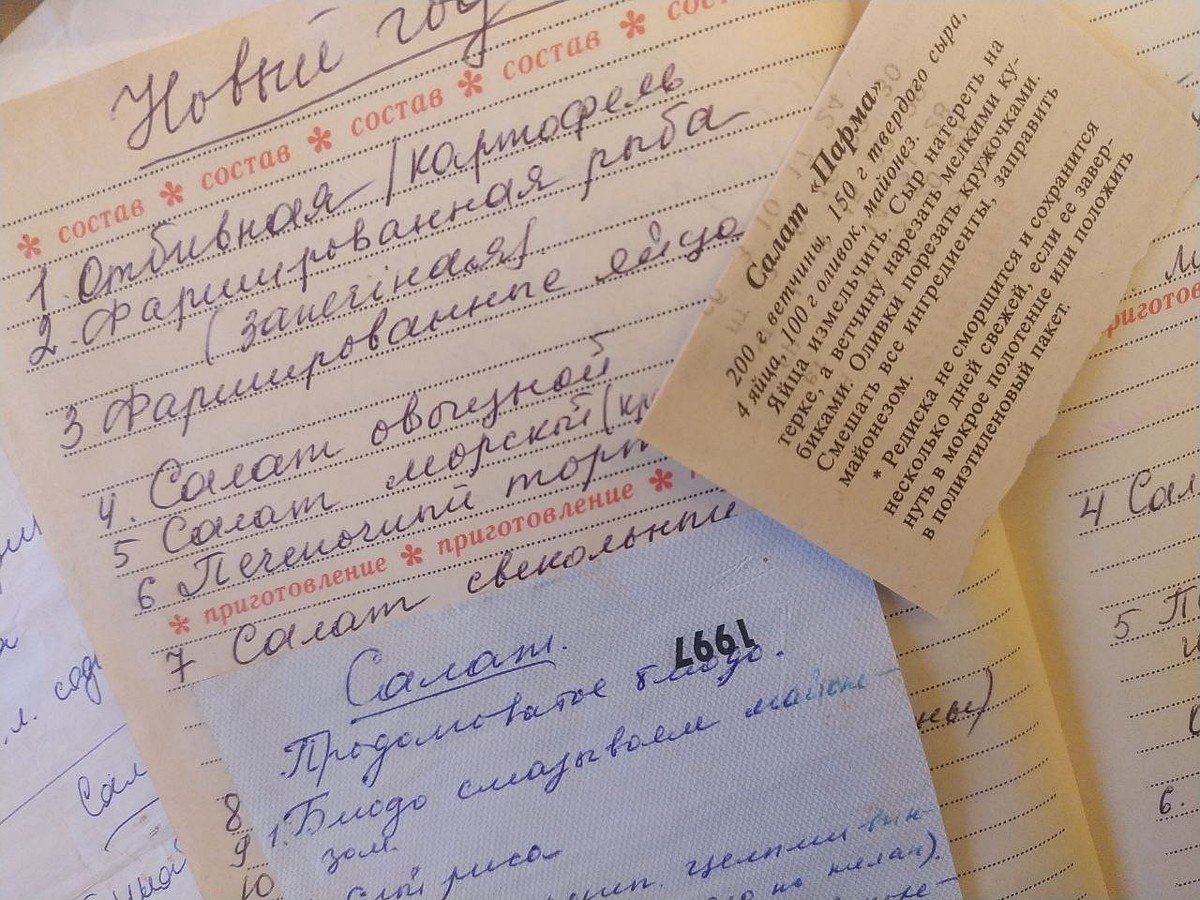 Новый год
* состав * состав * состав * состав *
1. Отбивная / картофель
2. Фаршированная рыба
(запечіная)
3 Фаршированные яйца
4. Салат овощной
5 Салат морской
6 Печеночный торт
* приготовление * приготовление *
7 Салат свекольные
8
9
10
Салат «Парма»
200 г ветчины, 150 г твердого сыра,
4 яйца, 100 г оливок, майонез.
Яйца измельчить. Сыр натереть на
терке, а ветчину нарезать мелкими ку-
биками. Оливки порезать кружочками.
Смешать все ингредиенты, заправить
майонезом.
* Редиска не сморщится и сохранится
несколько дней свежей, если ее завер-
нуть в мокрое полотенце или положить
в полиэтиленовый пакет.
1997
Салат.
Продолговатое блюдо.
1. Блюдо смазываем майоне-
зом.
слой риса
4 Сал
5 П
6.